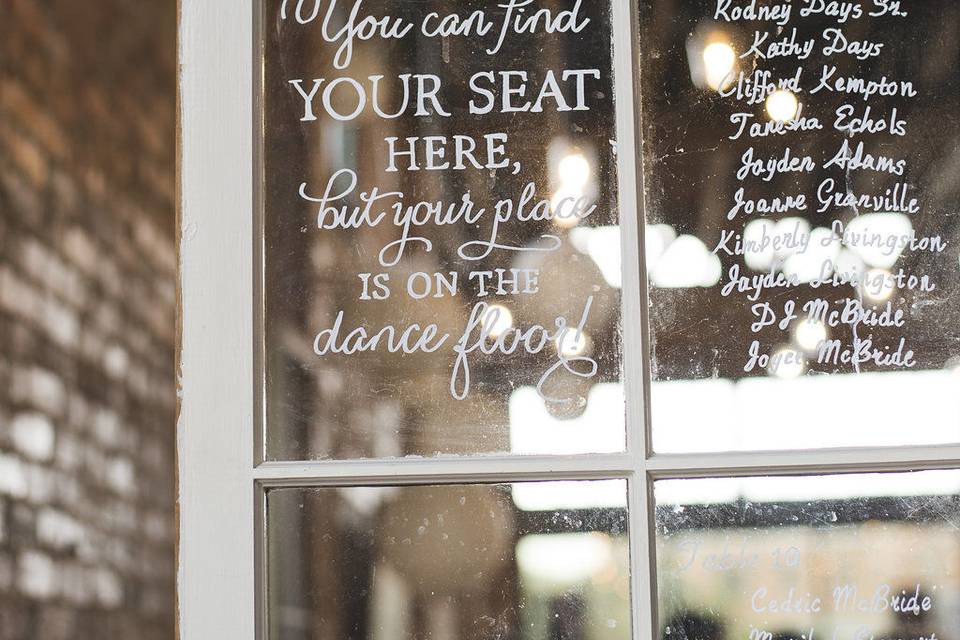 You can find
YOUR SEAT
HERE,
but your place
IS ON THE
dance floor!
Rodney Days Sr.
Kathy Days
Clifford Kempton
Tanesha Echols
Jayden Adams
Joanne Granville
Kimberly Livingston
Jayden Livingston
DJ McBride
Joyce McBride
Table 10
Cedric McBride